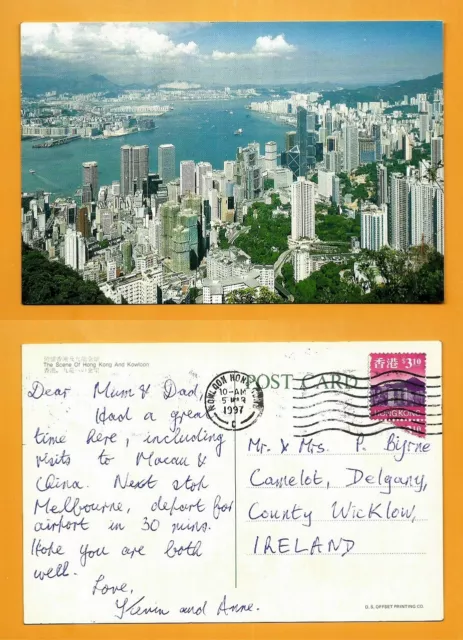 The Scene Of Hong Kong And Kowloin
POST CARD
KOWLOON HONG KONG
10-AM
5 MR
1997
C
香港 $3.10
HONG KONG
Dear Mum & Dad,
Had a great
time here, including
visits to Macau &
China. Next stop
Melbourne, depart for
airport in 30 mins.
Hope you are both
well.
Love,
Kevin and Anne.
Mr. & Mrs. P. Byrne
Camelot, Delgany,
County Wicklow,
IRELAND
D. S. OFFSET PRINTING CO.